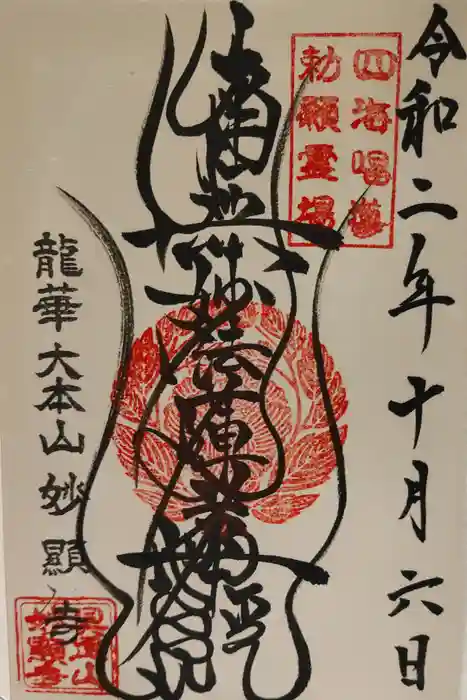 令和二年十月六日
四海唱導
勅願霊場
南無妙法蓮華経
龍華大本山妙顯寺